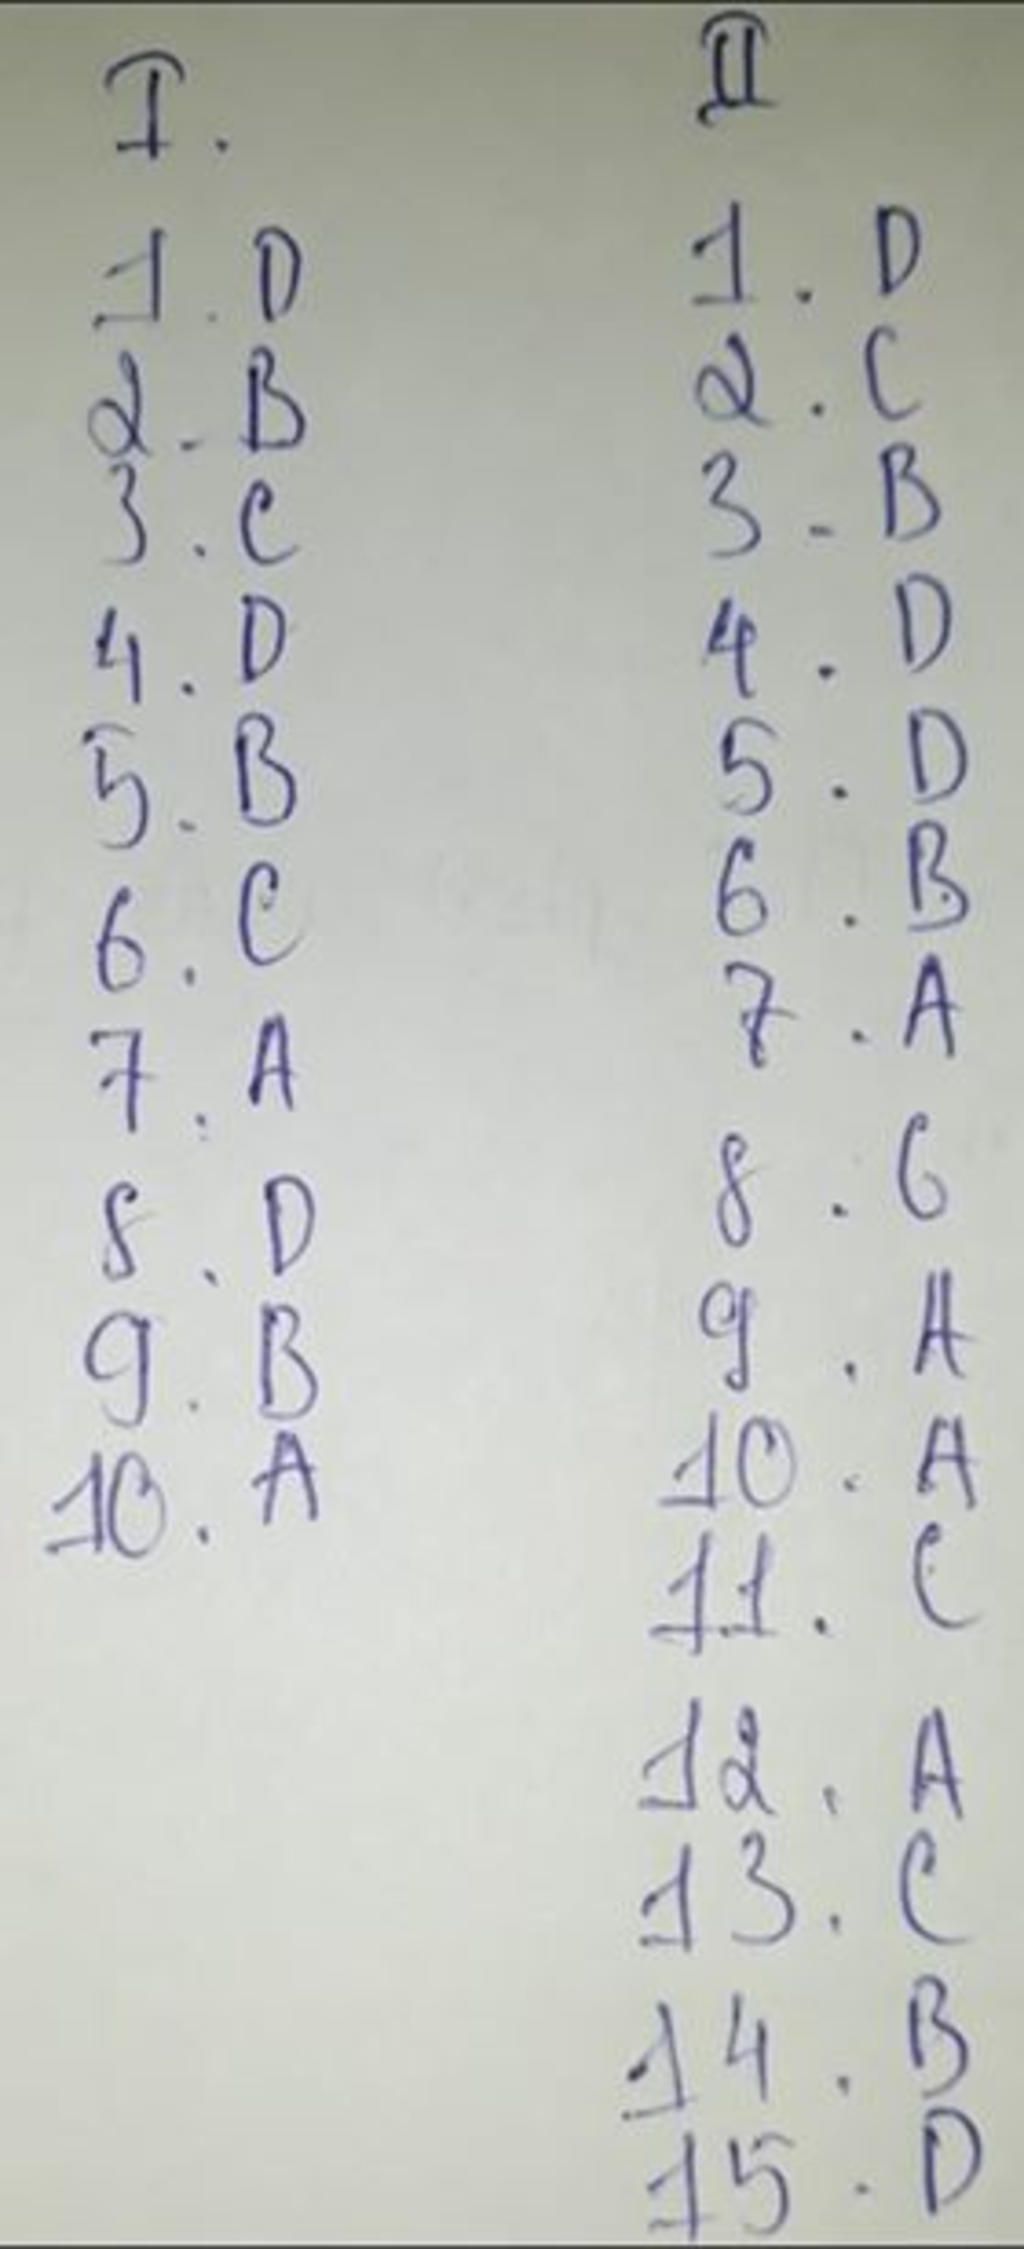 I.
1. D
2. B
3. C
4. D
5. B
6. C
7. A
8. D
9. B
10. A
II
1. D
2. C
3. B
4. D
5. D
6. B
7. A
8. 6
9. A
10. A
11. C
12. A
13. C
14. B
15. D